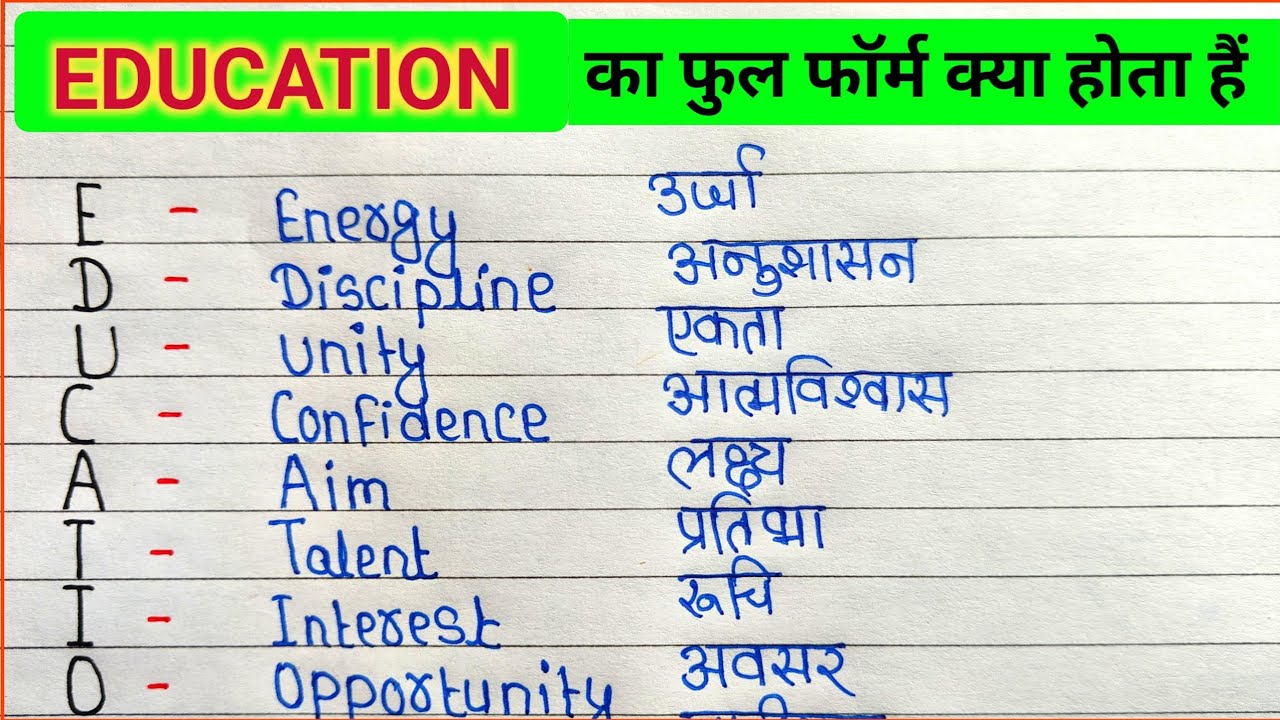 EDUCATION का फुल फॉर्म क्या होता हैं
E - Energy उर्जा
D - Discipline अनुशासन
U - unity एकता
C - Confidence आत्मविश्वास
A - Aim लक्ष्य
T - Talent प्रतिभा
I - Interest रूचि
O - Opportunity अवसर